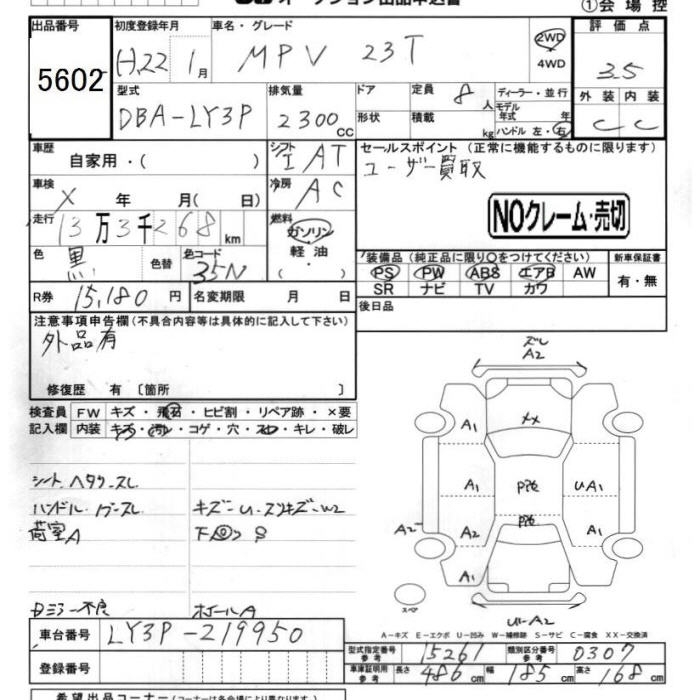 ①会場控
出品番号 初度登録年月 車名・グレード 評価点
5602 H22 1月 MPV 23T 2WD 4WD 3.5
型式 排気量 ドア 定員 8人 ディーラー・並行 外装 内装
DBA-LY3P 2300cc 形状 積載 kg モデル年式 年 ハンドル 左・右 C C
車歴 自家用・( ) シフト IAT セールスポイント(正常に機能するものに限ります)
ユーザー買取
車検 X 年 月( 日) 冷房 AC
NOクレーム・売切
走行 13万3千268km 燃料 ガソリン 軽油・( )
色 黒 色替 色コード 35N
装備品(純正品に限り○をつけてください) 新車保証書
PS PW ABS エアB AW 有・無
SR ナビ TV カワ
R券 15,180円 名変期限 月 日 後日品
注意事項申告欄(不具合内容等は具体的に記入して下さい)
外品有
修復歴 有 〔箇所 〕
検査員 FW キズ・飛石・ヒビ割・リペア跡・×要
記入欄 内装 キズ・汚レ・コゲ・穴・スレ・キレ・破レ
ズレ
A2
A1 XX
シート ヘタリ スレ
ハンドル
荷室A
A1 UA1
A2 A2 A1
A1
スペア
U-A2
ホイールA
A-キズ E-エクボ U-凹み W-補修跡 S-サビ C-腐食 XX-交換済
車台番号 LY3P-219950
型式指定番号 参考 15261 類別区分番号 参考 0307
登録番号
車庫証明用 参考 長さ 486cm 幅 185cm 高さ 168cm
希望出品コーナー